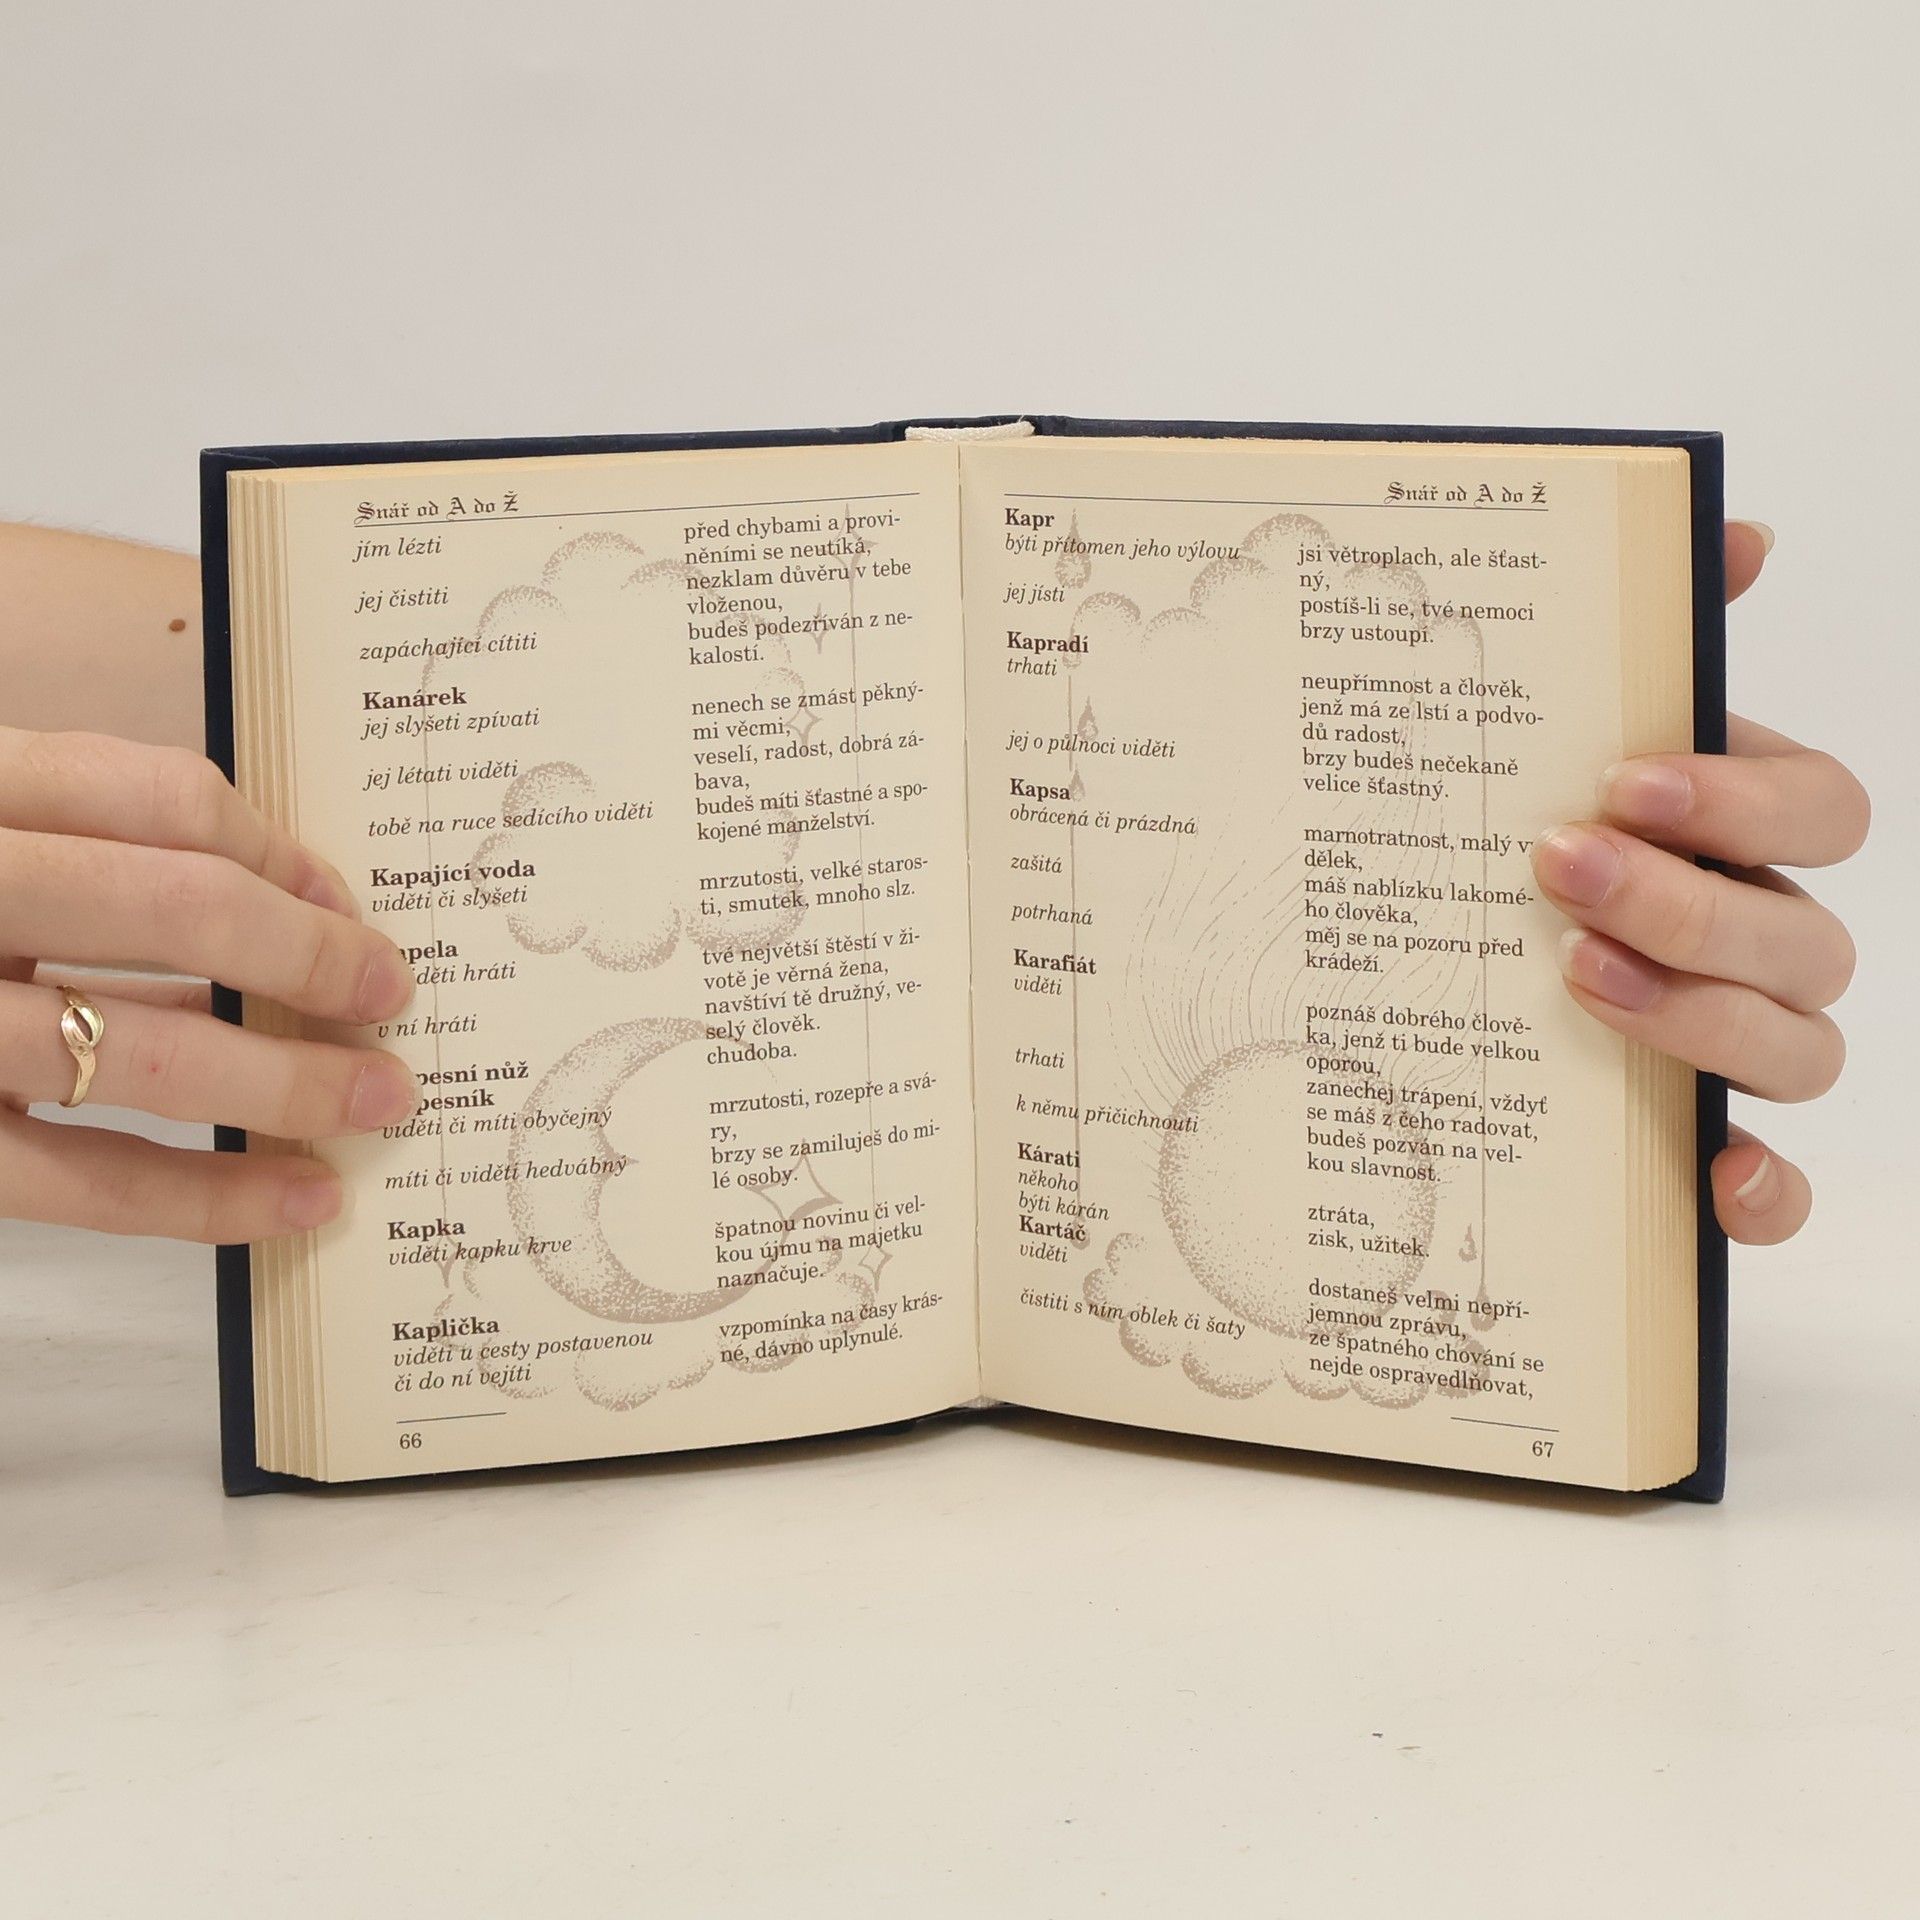 Snář od A do Ž
jím lézti
před chybami a provi-
něními se neutíká,
jej čistiti
nezklam důvěru v tebe
vloženou,
zapáchající cítiti
budeš podezříván z ne-
kalostí.
Kanárek
jej slyšeti zpívati
nenech se zmást pěkný-
mi věcmi,
jej létati viděti
veselí, radost, dobrá zá-
bava,
tobě na ruce sedícího viděti
budeš míti šťastné a spo-
kojené manželství.
Kapající voda
viděti či slyšeti
mrzutosti, velké staros-
ti, smutek, mnoho slz.
hráti
tvé největší štěstí v ži-
votě je věrná žena,
navštíví tě družný, ve-
selý člověk.
v ní hráti
chudoba.
nůž
viděti či míti obyčejný
mrzutosti, rozepře a svá-
ry,
míti či viděti hedvábný
brzy se zamiluješ do mi-
lé osoby.
Kapka
viděti kapku krve
špatnou novinu či vel-
kou újmu na majetku
naznačuje.
Kaplička
viděti u cesty postavenou
či do ní vejíti
vzpomínka na časy krás-
né, dávno uplynulé.
66
Snář od A do Ž
Kapr
býti přítomen jeho výlovu
jsi větroplach, ale šťast-
ný,
jej jísti
postíš-li se, tvé nemoci
brzy ustoupí.
Kapradí
trhati
neupřímnost a člověk,
jenž má ze lstí a podvo-
dů radost,
jej o půlnoci viděti
brzy budeš nečekaně
velice šťastný.
Kapsa
obrácená či prázdná
marnotratnost, malý
dělek,
zašitá
máš nablízku lakomé-
ho člověka,
potrhaná
měj se na pozoru před
krádeží.
Karafiát
viděti
poznáš dobrého člově-
ka, jenž ti bude velkou
oporou,
trhati
zanechej trápení, vždyť
se máš z čeho radovat,
k němu přičichnouti
budeš pozván na vel-
kou slavnost.
Kárati
někoho
ztráta,
býti kárán
zisk, užitek.
Kartáč
viděti
dostaneš velmi nepří-
jemnou zprávu,
čistiti s ním oblek či šaty
ze špatného chování se
nejde ospravedlňovat,
67